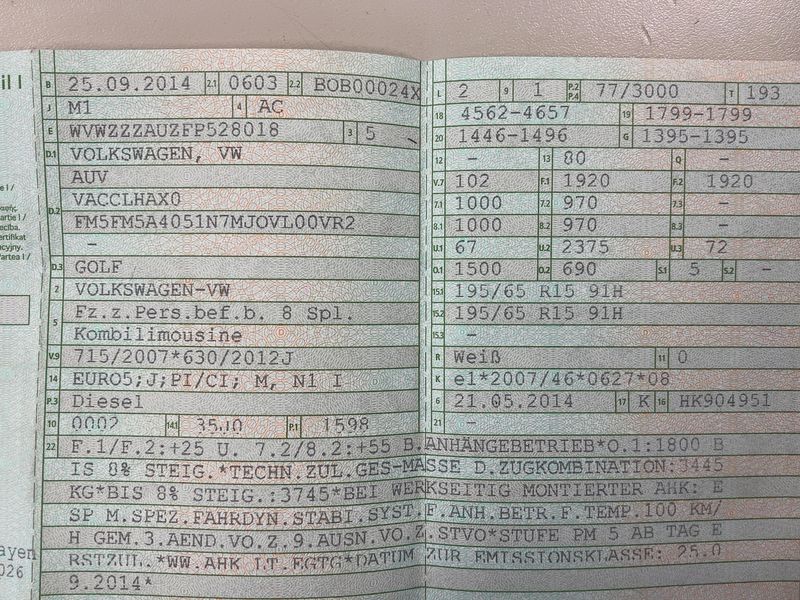 il I
B 25.09.2014 2.1 0603 2.2 BOB00024X
J M1 4 AC
E WVWZZZAUZFP528018 3 5 -
D.1 VOLKSWAGEN, VW
AUV
VACCLHAX0
D.2 FM5FM5A4051N7MJOVL00VR2
-
D.3 GOLF
2 VOLKSWAGEN-VW
5 Fz.z.Pers.bef.b. 8 Spl.
Kombilimousine
V.9 715/2007*630/2012J
14 EURO5;J;PI/CI; M, N1 I
P.3 Diesel
10 0002 14.1 35J0 P.1 1598
L 2 9 1 P.2 P.4 77/3000 T 193
18 4562-4657 19 1799-1799
20 1446-1496 G 1395-1395
12 - 13 80 Q -
V.7 102 F.1 1920 F.2 1920
7.1 1000 7.2 970 7.3 -
8.1 1000 8.2 970 8.3 -
U.1 67 U.2 2375 U.3 72
O.1 1500 O.2 690 S.1 5 S.2 -
15.1 195/65 R15 91H
15.2 195/65 R15 91H
15.3 -
R Weiß 11 0
K e1*2007/46*0627*08
6 21.05.2014 17 K 16 HK904951
21 -
22 F.1/F.2:+25 U. 7.2/8.2:+55 B.ANHÄNGEBETRIEB*O.1:1800 B
IS 8% STEIG.*TECHN.ZUL.GES-MASSE D.ZUGKOMBINATION:3445
KG*BIS 8% STEIG.:3745*BEI WERKSEITIG MONTIERTER AHK: E
SP M.SPEZ.FAHRDYN.STABI.SYST.F.ANH.BETR.F.TEMP.100 KM/
H GEM.3.AEND.VO.Z.9.AUSN.VO.Z.STVO*STUFE PM 5 AB TAG E
RSTZUL.*WW.AHK LT.EGTG*DATUM ZUR EMISSIONSKLASSE: 25.0
9.2014*
ayen
026